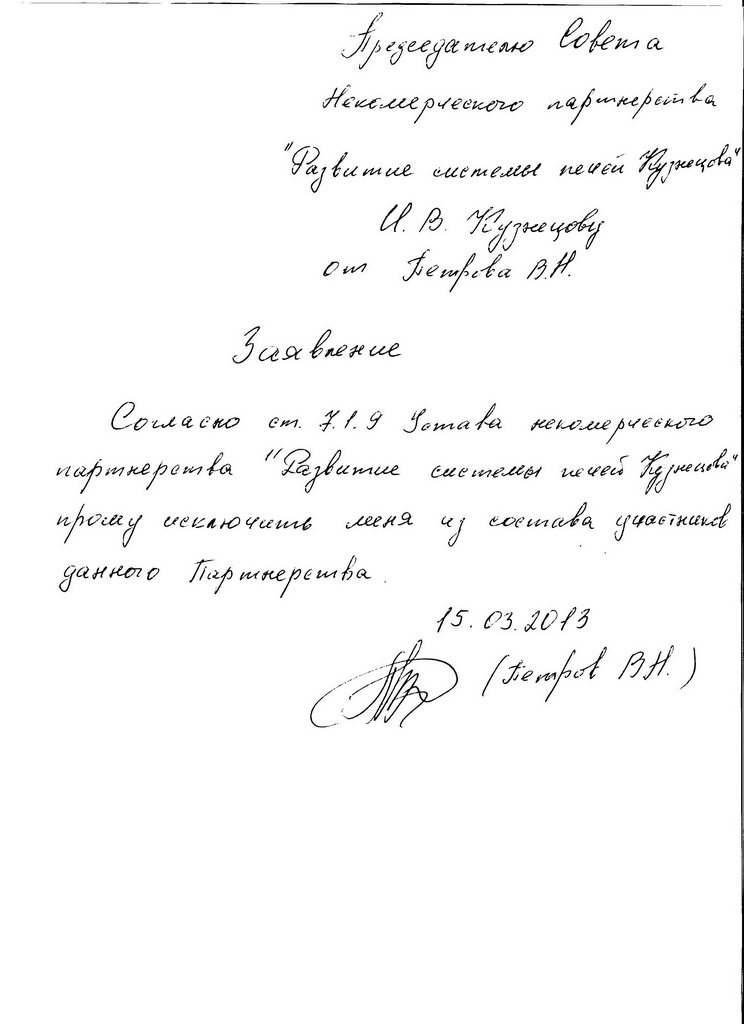 Председателю Совета
Некомерческого партнерства
"Развитие системы печей Кузнецова"
И. В. Кузнецову
от Петрова В.Н.
Заявление
Согласно ст. 7.1.9 Устава некомерческого
партнерства "Развитие системы печей Кузнецова"
прошу исключить меня из состава участников
данного Партнерства.
15.03.2013
(Петров В.Н.)